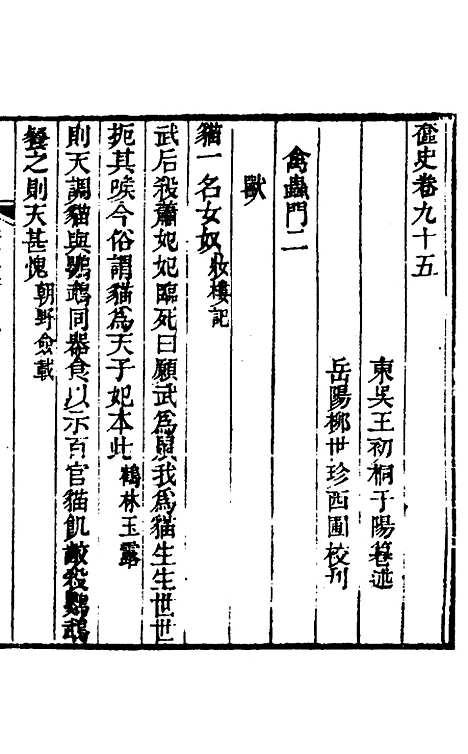 奩史卷九十五
東吳王初桐于陽纂述
岳陽柳世珍西圃校刊
禽蟲門二
獸
貓一名女奴妝樓記
武后殺蕭妃妃臨死曰願武為鼠我為貓生生世世
扼其喉今俗謂貓為天子妃本此鶴林玉露
則天調貓與鸚鵡同器食以示百官貓飢敵殺鸚鵡
餐之則天甚愧朝野僉載